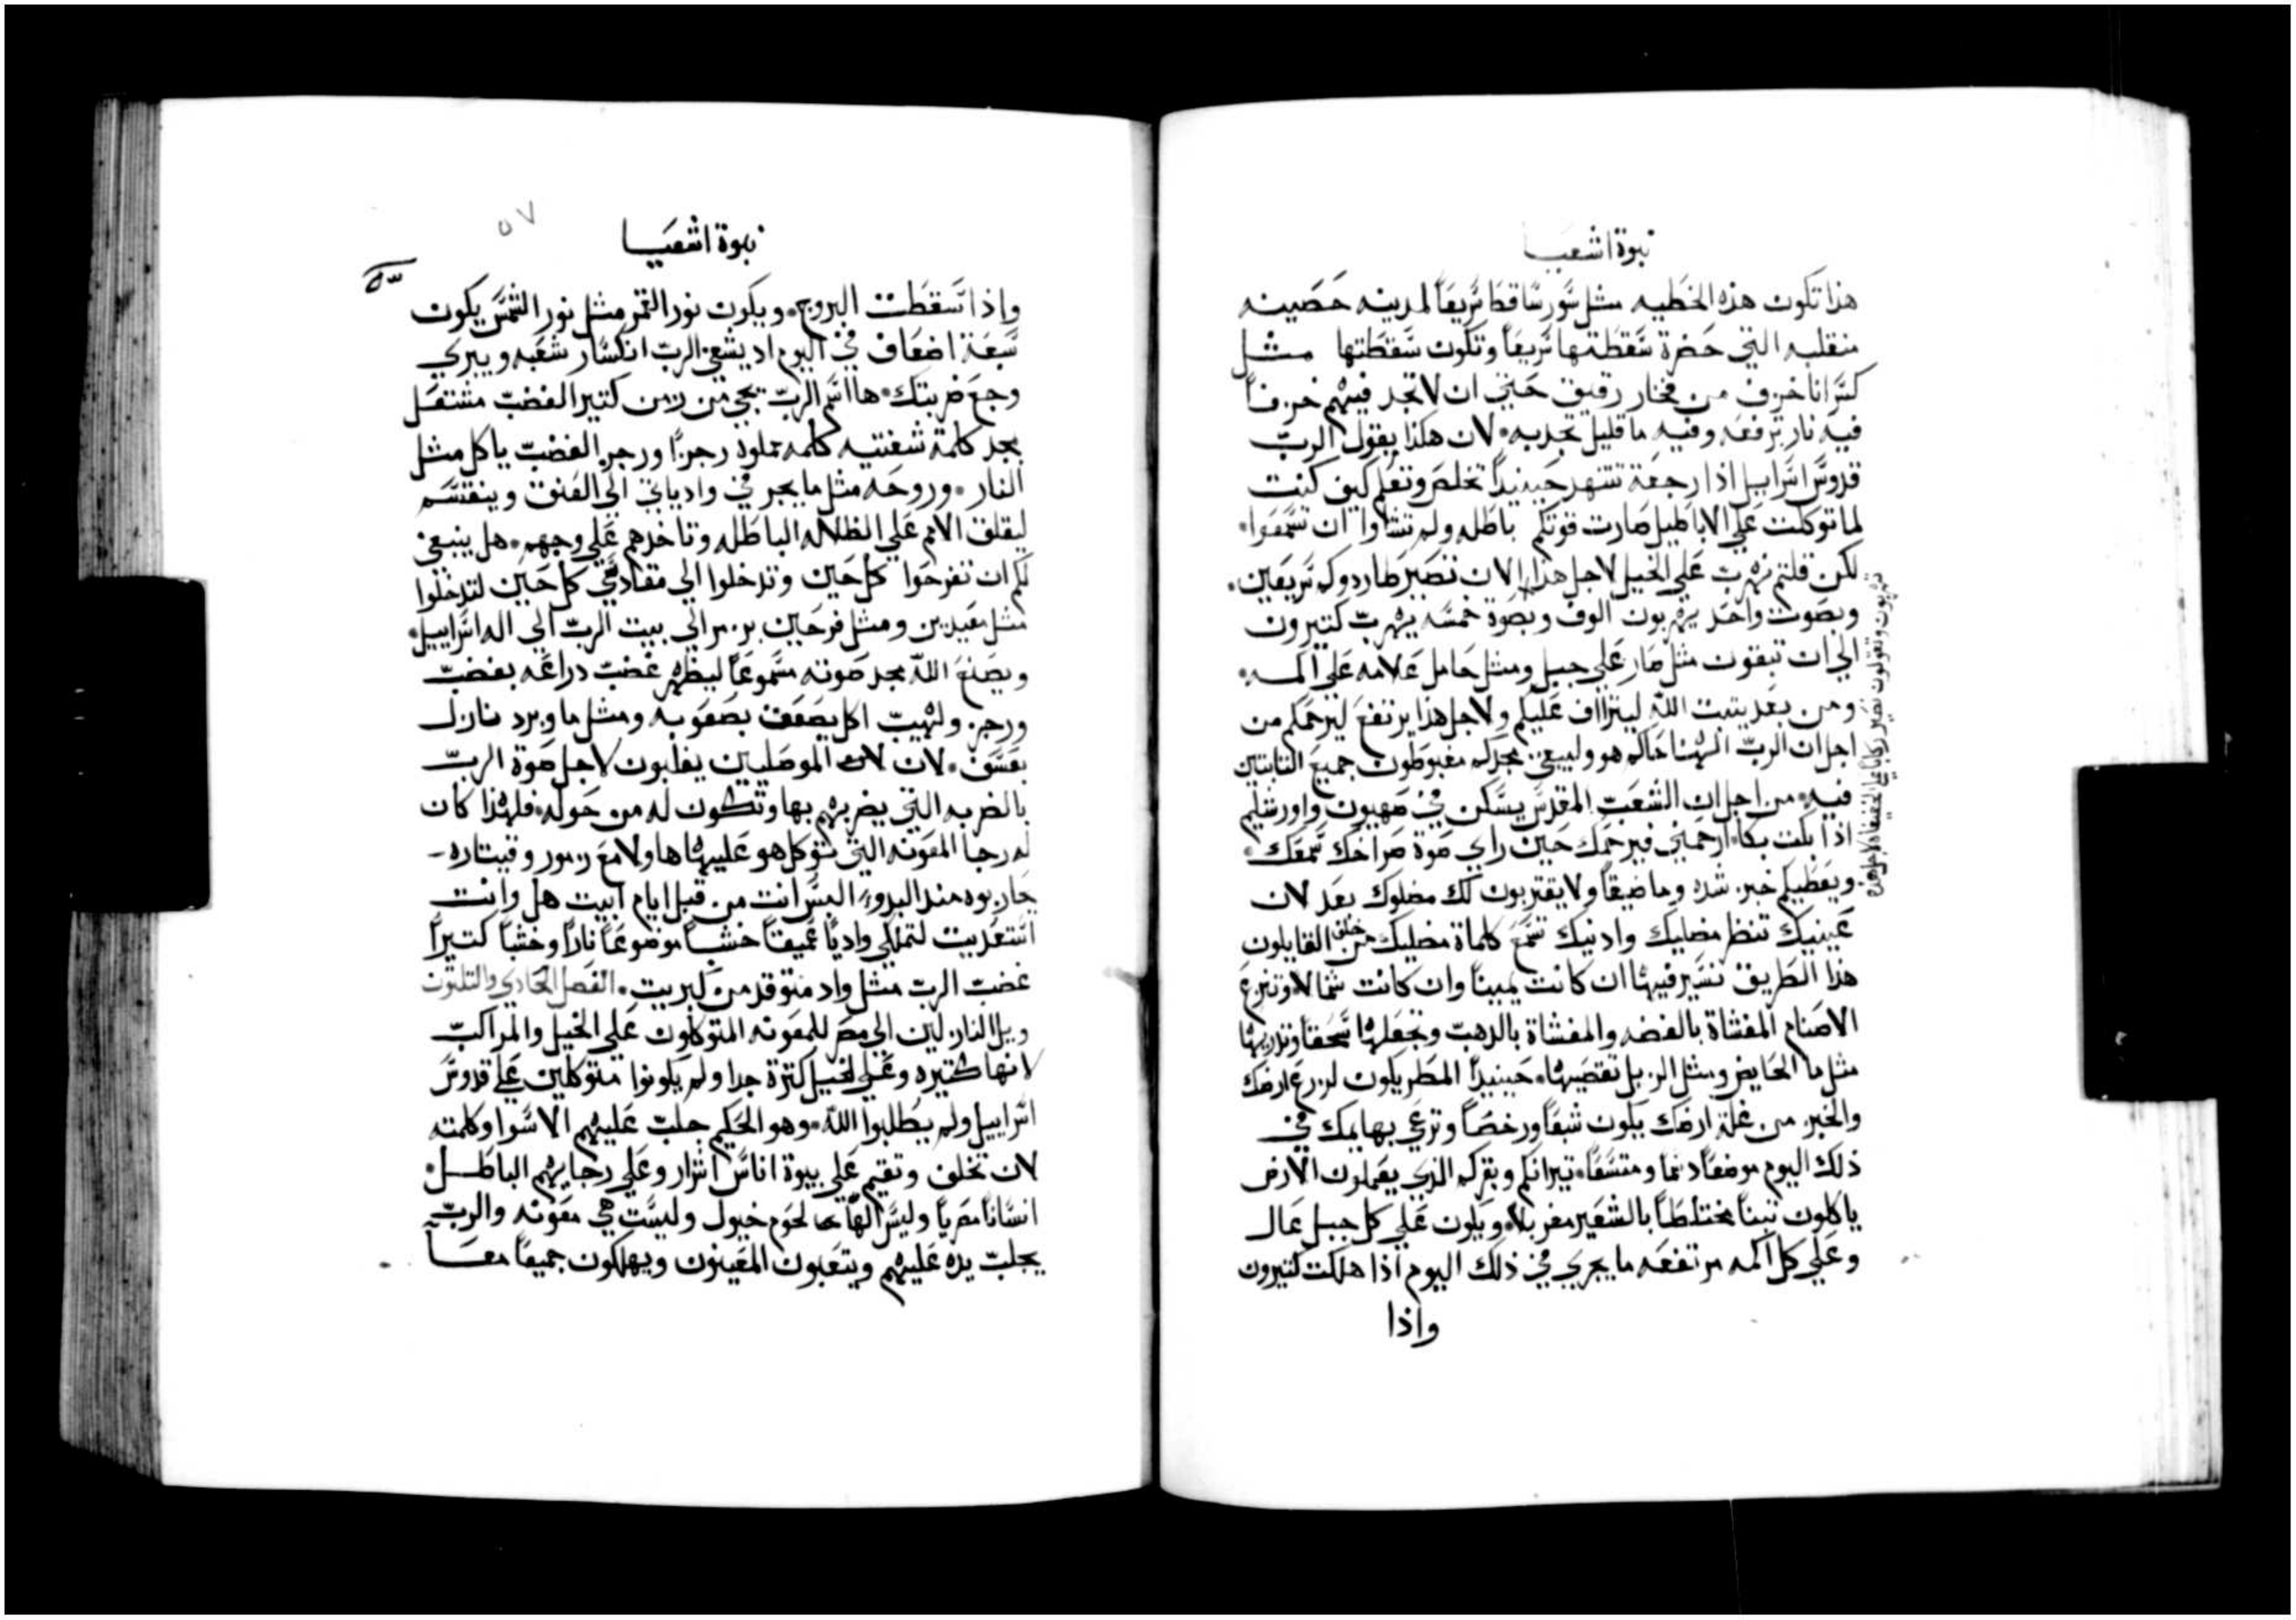 نبوة اشعيا
هذا تكون هذه الخطيه مثل سور ساقط سريعاً لمدينه حصينه
منقلبه التي حضرة سقطتها سريعاً وتكون سقطتها مثل
كسر انا خزف من فخار رقيق حتي ان لا تجد فيهم خزفاً
فيه نار ترفعه وفيه ما قليل تجدبه لان هكذا يقول الرب
قدوس اسراييل اذا رجعة تتنهد حينيداً تخلص وتعلم كيف كنت
لما توكلت علي الاباطيل صارت قوتكم باطله ولم تشاوا ان تسمعوا
لكن قلتم نهرب علي الخيل لاجل هذا الان نصير طاردوكم سريعين
وبصوت واحد يهربون الوف وبصوة خمسه يهرب كتيرون
الي ان تبقون مثل صار علي جبل ومثل حامل علامه علي اكمه
ومن بعد يتبت الله ليتراف عليكم ولاجل هذا يرتفع ليرحمكم من
اجل ان الرب الهنا حاكم هو ولييقي مجدكم مغبوطون جميع التابتين
فيه من اجل ان الشعب المقدس يسكن في صهيون واورشليم
اذا بكت بكاء ارحميني فيرحمك حين راي صوة صراخك سمعك
ويعطيكم خبز شده وما ضيقاً ولا يقتربون لك مضلوك بعد لان
عينيك تنظر مضليك وادنيك تسمع كلماة مضليك من خلف القايلون
هذا الطريق نسير فيها ان كانت يميناً وان كانت شمالا وتنزع
الاصنام المغشاة بالفضه والمغشاة بالدهب وتجعلها سحقاً وتدريها
مثل ما الحايض ومثل الزبل تقصيها حينيداً المطر يكون لزرع ارضك
والخبز من غلة ارضك يكون شبعاً ورخصاً وترعي بهايمك في
ذلك اليوم موضعاً دسماً ومتسعاً تيرانكم وبقركم الذي يعملون الارض
ياكلون تبناً مختلطاً بالشعير مغربلا ويكون علي كل جبل عال
وعلي كل اكمه مرتفعه ما يجري في ذلك اليوم اذا هلكت كتيرون
واذا
نهربون وتقولون نصير ركاباً علي الخفيفاة لاجل هذا
٥٧
نبوة اشعيا
واذا سقطت البروج ويكون نور القمر مثل نور الشمس يكون
سبعة اضعاف في اليوم اد يشفي الرب انكسار شعبه ويبري
وجع ضربتك ها اسم الرب يجي من زمن كتير الغضب مشتعل
بمجد كلمة شفتيه كلمه مملوه رجزاً ورجز الغضب ياكل مثل
النار وروحه مثل ما يجر في واد ياتي الي العنق وينقسم
ليقلق الامم علي الظلاله الباطله وتاخدهم علي وجههم هل ينبغي
لكم ان تفرحوا كل حين وتدخلوا الي مقادسي كل حين لتدخلوا
مثل معيدين ومثل فرحين بزمر الي بيت الرب الي اله اسراييل
ويصنع الله مجد صوته مسموعاً ليظهر غضب دراعه بغضب
ورجز ولهيب اكل يصعق بصعوبه ومثل ما وبرد نازل
بعسف لان لان الموصليين يغلبون لاجل صوة الرب
بالضربه التي يضربهم بها وتكون له من حوله فلهذا كان
له رجا المعونه التي توكل هو عليها هاولا مع زمور وقيتاره
حاربوه مند البدو اليس انت من قبل ايام ابيت هل وانت
استعديت لتملك وادياً عميقاً خشباً موضوعاً ناراً وخشباً كتيراً
غضب الرب مثل واد متوقد من كبريت الفصل الحادي والتلتون
ويل النازلين الي مصر للمعونه المتوكلون علي الخيل والمراكب
لانها كتيره وعلي الخيل كترة جدا ولم يكونوا متوكلين علي قدوس
اسراييل ولم يطلبوا الله وهو الحكيم جلب عليهم الاسوا وكلمته
لان تخلف وتقيم علي بيوة اناس اشرار وعلي رجايهم الباطل
انساناً مصرياً وليس الهاً لحوم خيول وليست هي معونه والرب
يجلب يده عليهم ويتعبون المعينون ويهلكون جميعاً معاً